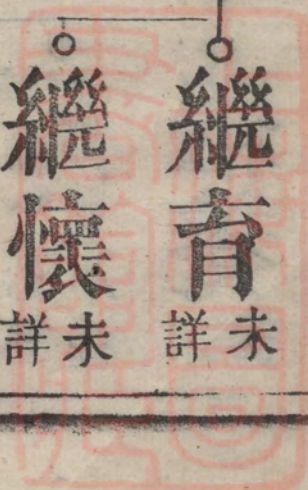 繼育
未詳
繼懷
未詳